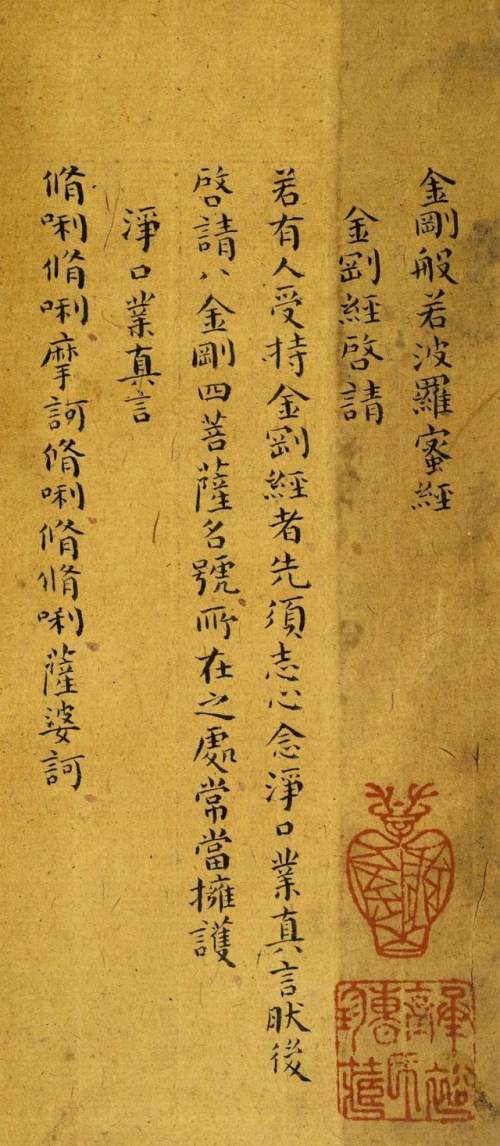 金剛般若波羅蜜經
金剛經啓請
若有人受持金剛經者先須志心念淨口業真言肰後
啓請八金剛四菩薩名號所在之處常當擁護
淨口業真言
脩唎脩唎摩訶脩唎脩脩唎薩婆訶